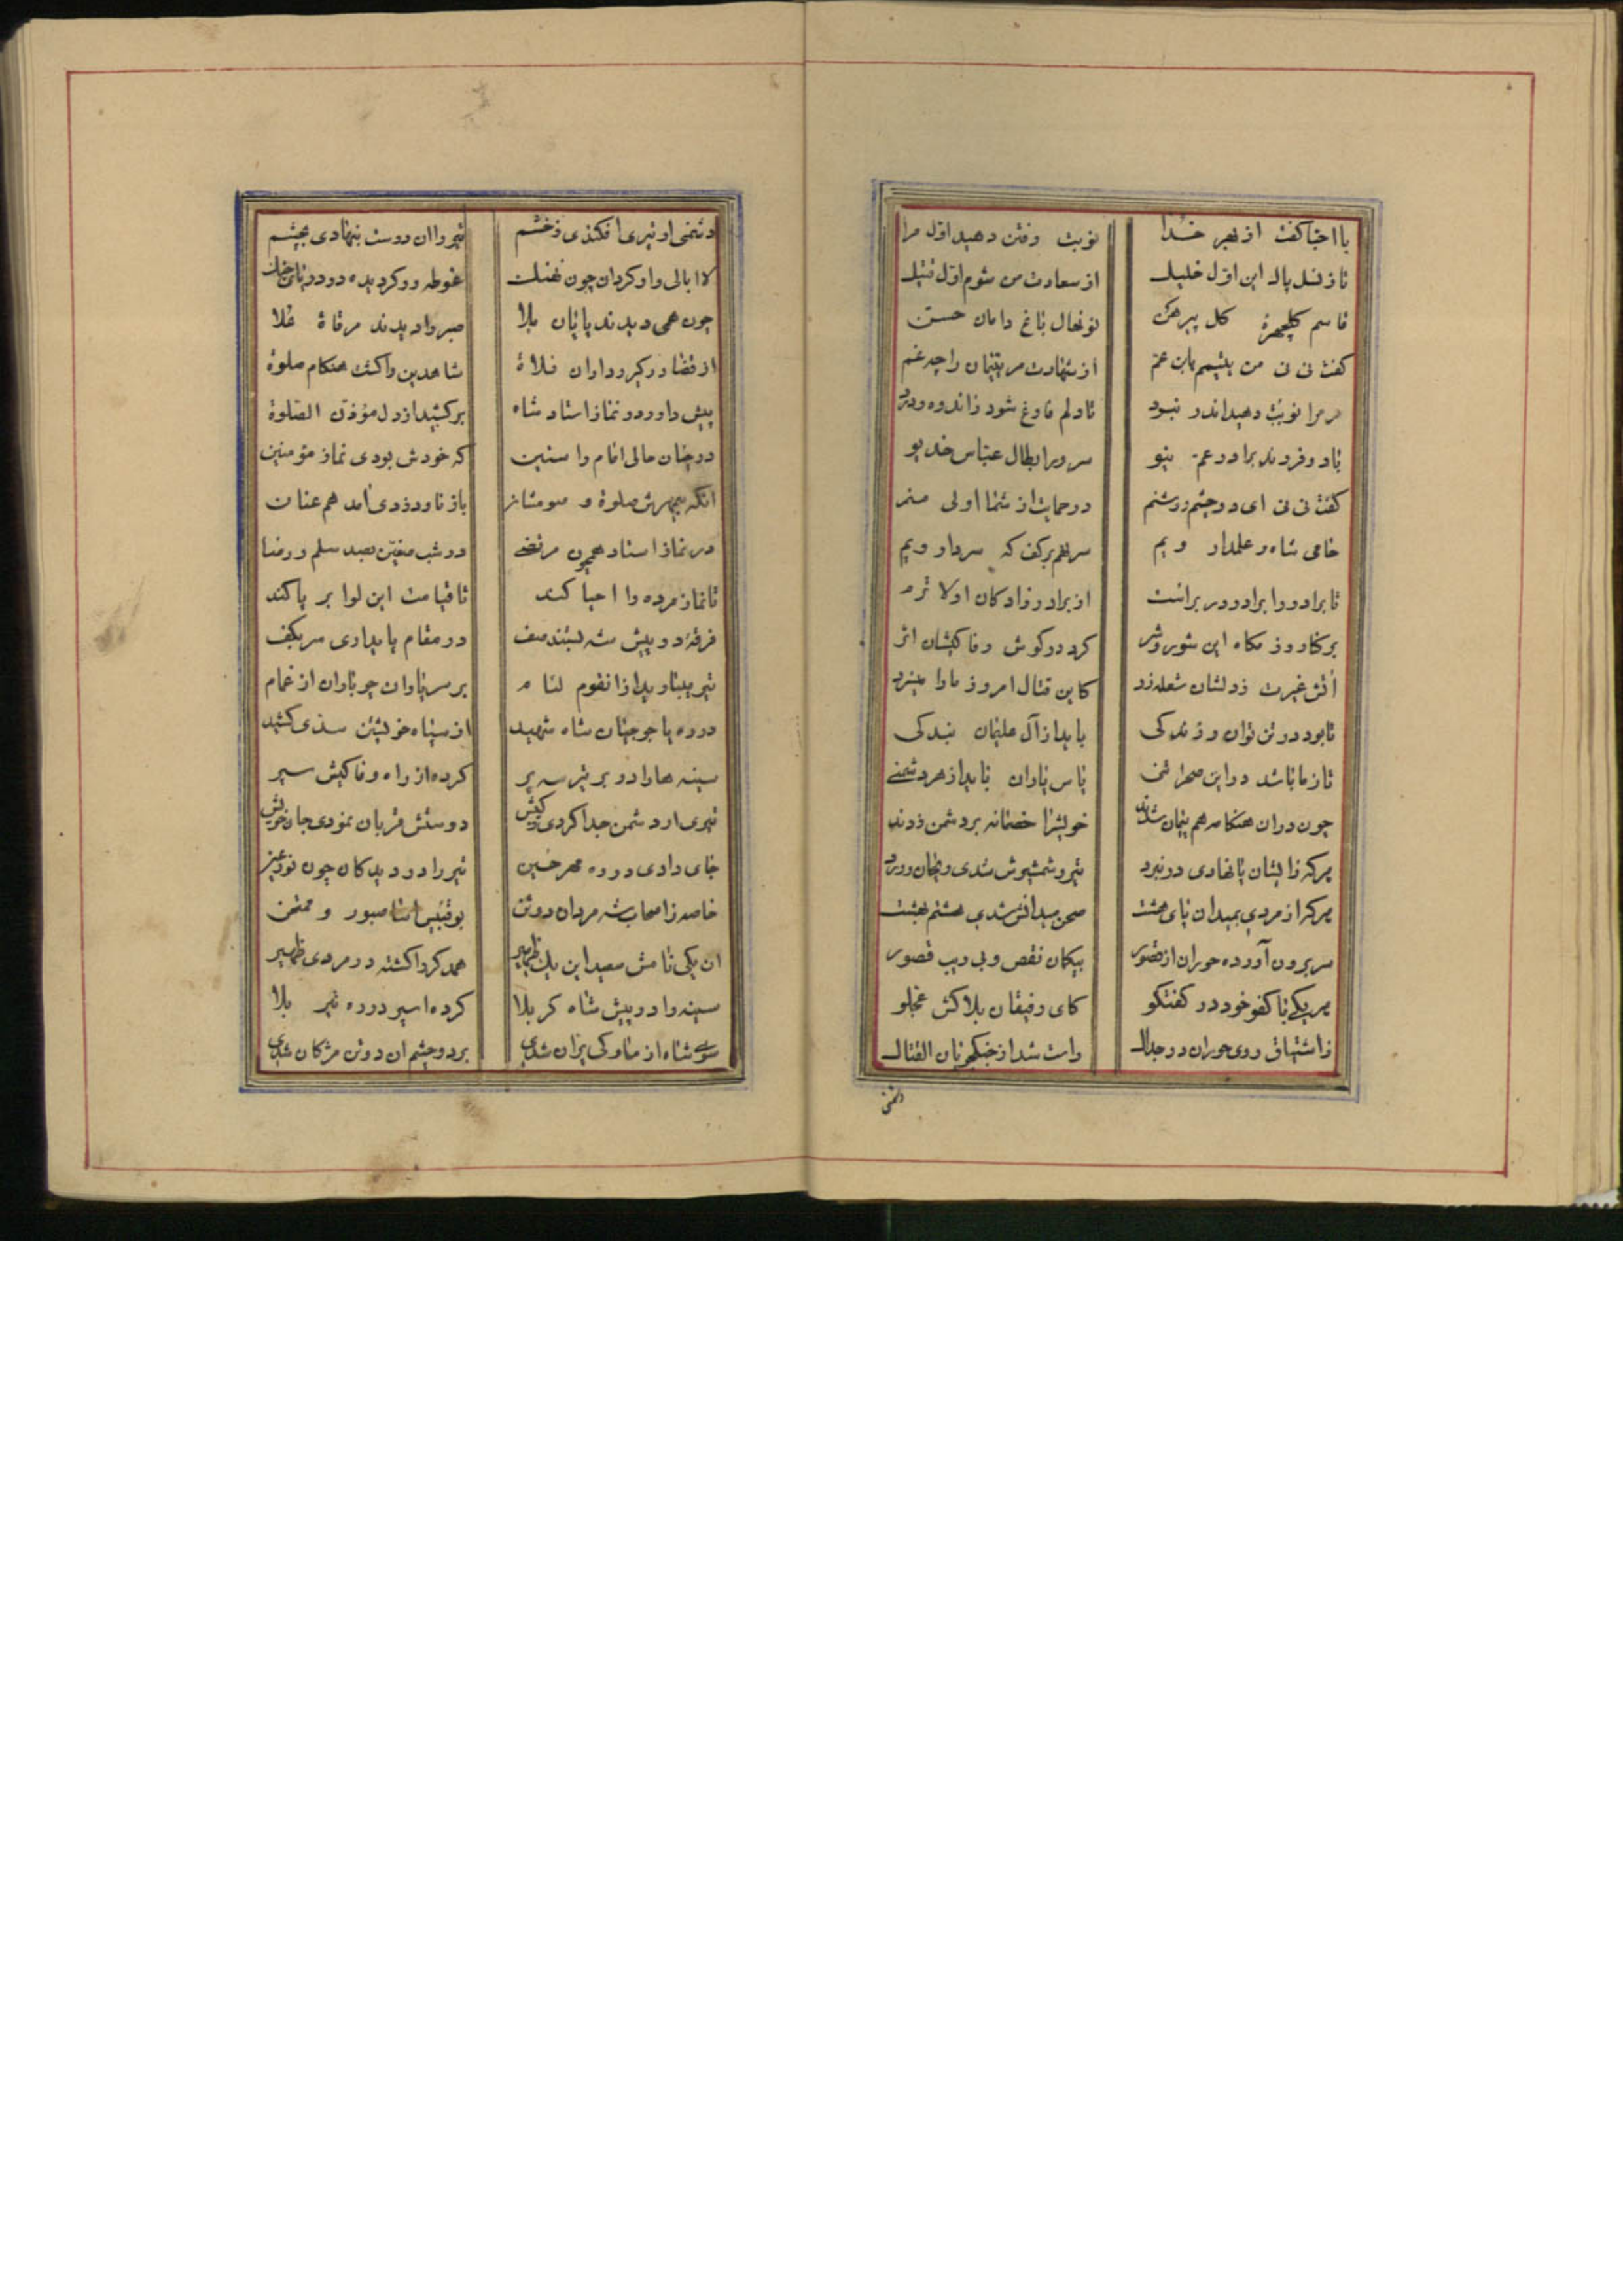 با احبا کفت از بهر خدا نوبت رفتن دهید اول مرا
تا ز نسل پاک این اول خلیل از سعادت من شوم اول قتیل
قاسم کلچهرهٔ کل پیرهن نونهال باغ دامان حسن
کفت نی نی من یتیمم یابن عم از شهادت مر یتیمان را چه غم
مر مرا نوبت دهید اندر نبرد تا دلم فارغ شود ز اندوه و درد
با دو فرزند برادر عم نیو سرور ابطال عباس خدیو
کفت نی نی ای دو چشم روشنم در حمایت از شما اولی منم
حامی شاه و علمدار ویم سر قلم بر کف که سردار ویم
تا برادر را برادر در بر است از برادر زادکان اولا تر
بر کنار رزمکاه این شور و شر کرد در کوش وفا کیشان اثر
آتش غیرت ز دلشان شعله زد کاین قتال امروز ما را میزد
تا بود در تن توان و زندکی باید از آل علیمان بندکی
تا ز ما باشد در این صحرا تنی پاس یاران باید از هر دشمنی
چون در ان هنکامه هم پیمان شدند خویش را خصمانه بر دشمن زدند
هر که زایشان پا نهادی در نبرد تیر و شمشیرش شدی ریحان و ورد
هر که از مردی بمیدان پای هشت صحن میدانش شدی هشتم بهشت
سر برون آورده حوران از قصور بیکمان نقص و بی ریب قصور
هر یکی با کفو خود در کفتکو کای رفیقان بلاکش عجلو
ز اشتیاق روی حوران در جدال راست شد از جنکجویان القتال
دشمنی ار تیری افکندی ز خشم تیر را ان دوست بنهادی بچشم
لا ابالی وار کردان چون نهنک غوطه ور کردیده در دریای جنک
چون همی دیدند پایان بلا صبر را دیدند مرقاة علا
از قضا در کیر و دار ان فلاة شاهدین را کشت هنکام صلوة
پیش داور در نماز استاد شاه برکشید از دل مؤذن الصلوة
در چنان حالی امام راستین که خودش بودی نماز مؤمنین
انکه بیمهرش صلوة و صوم باز ناورد ذری آمد هم عنان
در نماز استاد همچون مرتضی در شب صفین بصد سلم و رضا
تا نماز مرده را احیا کند تا قیامت این لوا بر پا کند
فرقهٔ در پیش شه بستند صف در مقام پایداری سر بکف
تیر میبارید از انقوم لئام بر سر یاران چو باران از غمام
در ره یاجوجیان شاه شهید از سپاه خویشتن سدی کشید
سینه ها را در بر تیر سه پر کرده از راه وفا کیش سپر
تیری ار دشمن جدا کردی ز کیش دوستش قربان نمودی جان خویش
جای دادی در ره مهر حسین تیر را در دیدکان چون نور عین
خاصه ز اصحاب شه مردان دو تن صبور و ممتحن
ان یکی نامش سعید این یک ظهیر همد کردا کشته در مردی ظهیر
سینه را در پیش شاه کربلا کرده اسپر در ره تیر بلا
سوی شاه از ناوکی پران شدی بر دو چشم ان دو تن مژکان شدی